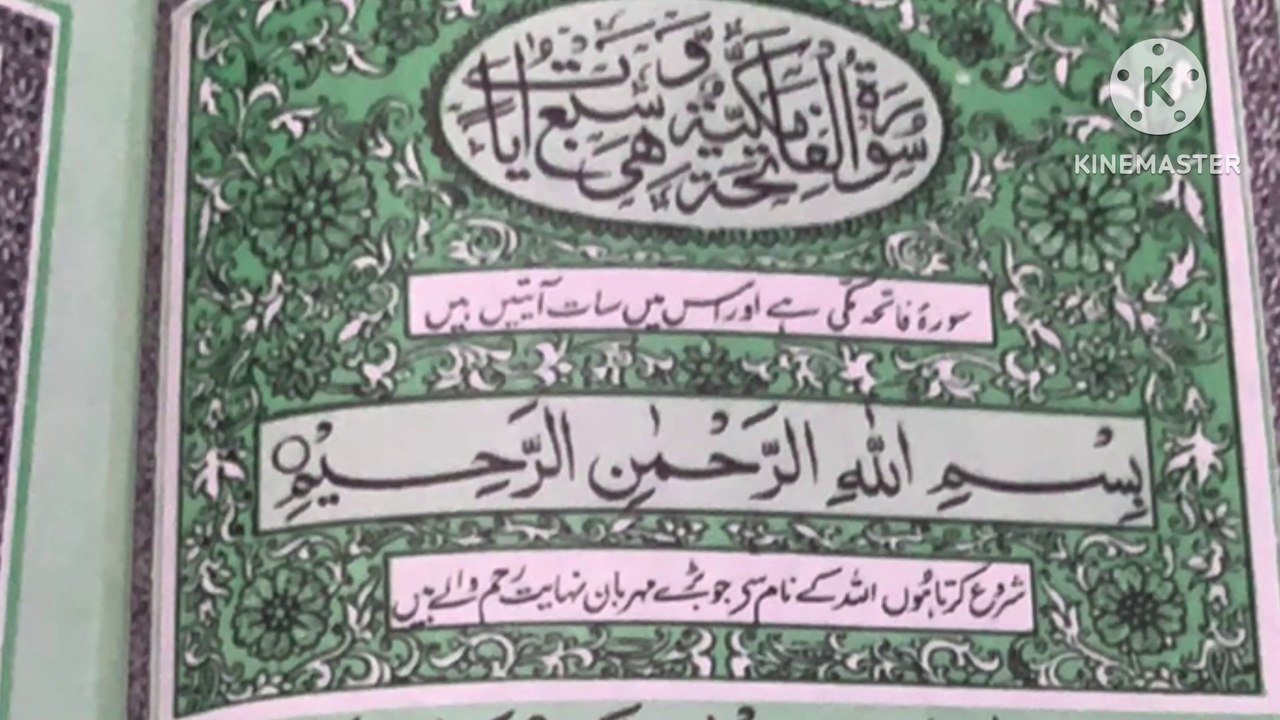 سُوْرَةُ الْفَاتِحَةِ مَكِّيَّةٌ وَّهِىَ سَبْعُ اٰيَاتٍ
K
KINEMASTER
سورۂ فاتحہ مکی ہے اور اس میں سات آیتیں ہیں
بِسْمِ اللّٰهِ الرَّحْمٰنِ الرَّحِيْمِ
شروع کرتا ہُوں اللہ کے نام سی جو بڑے مہربان نہایت رحم والے ہیں